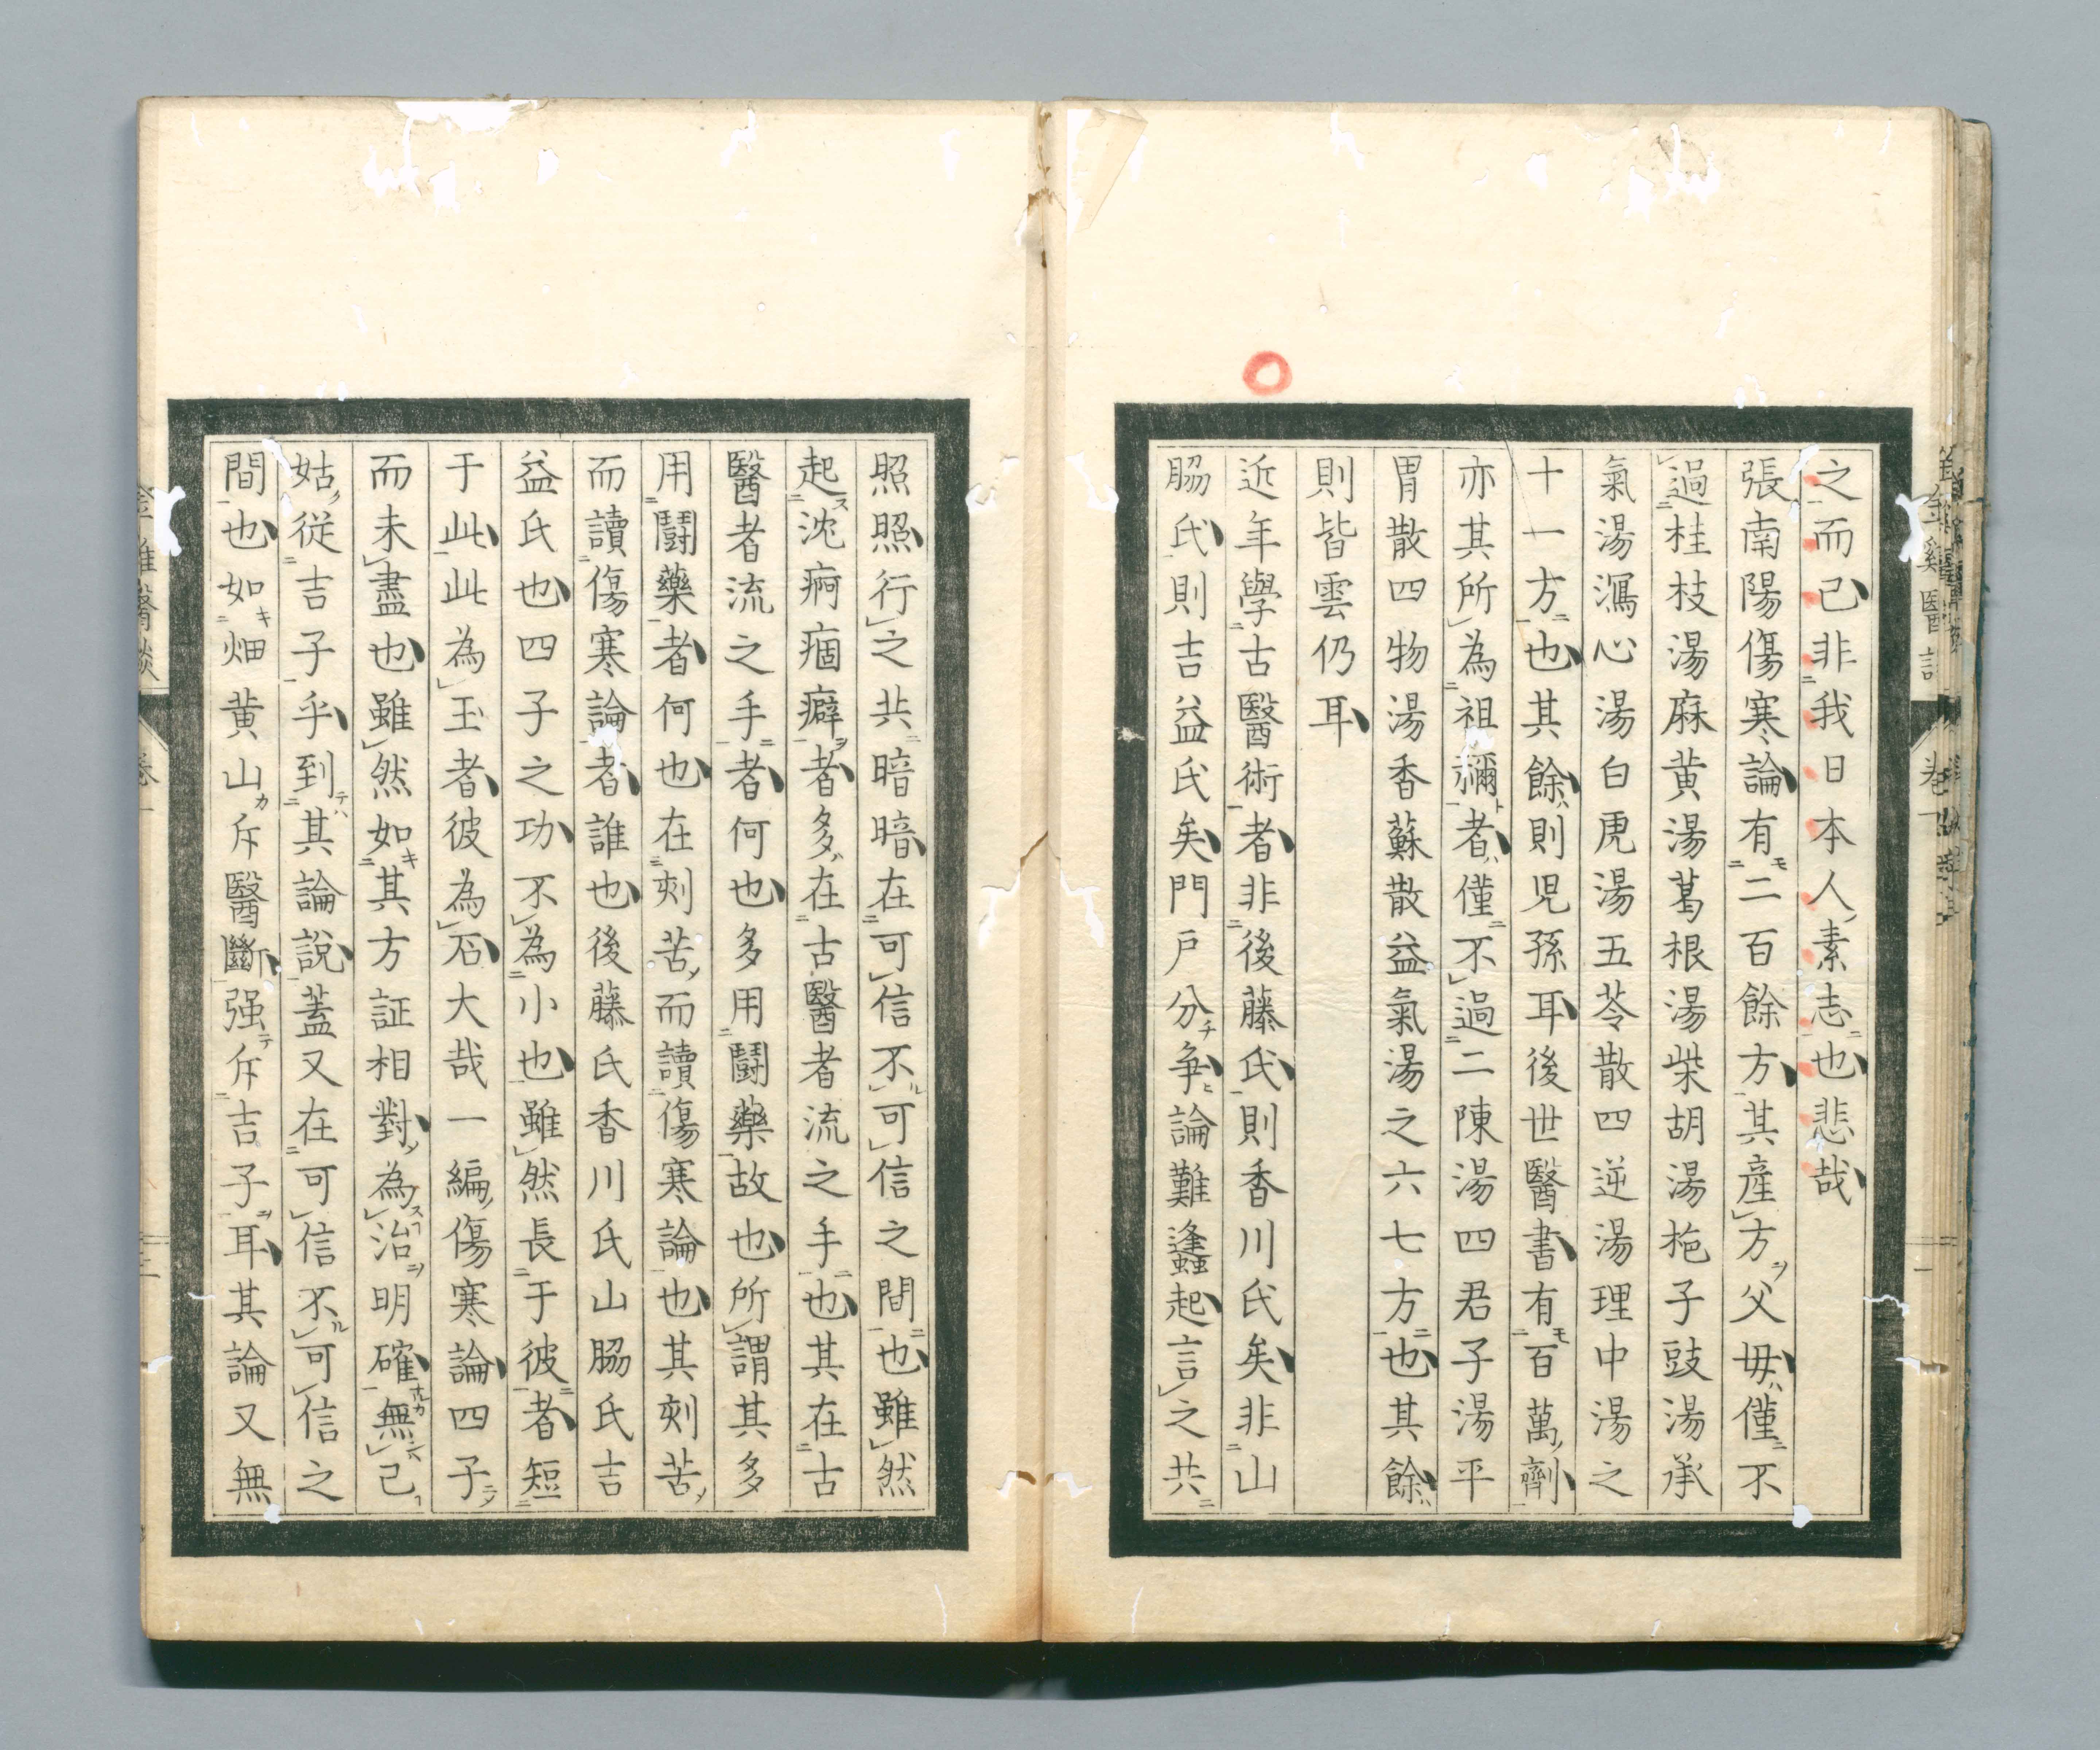 之而已非我日本人素志也悲哉
張南陽傷寒論有二百餘方其產方父母僅不
過桂枝湯麻黄湯葛根湯柴胡湯梔子豉湯承
氣湯瀉心湯白虎湯五苓散四逆湯理中湯之
十一方也其餘則児孫耳後世醫書有百萬劑
亦其所為祖禰者僅不過二陳湯四君子湯平
胃散四物湯香蘇散益氣湯之六七方也其餘
則皆雲仍耳
近年學古醫術者非後藤氏則香川氏矣非山
脇氏則吉益氏矣門戸分爭論難蠭起言之共
照照行之共暗暗在可信不可信之間也雖然
起沈痾痼癖者多在古醫者流之手也其在古
醫者流之手者何也多用鬪藥故也所謂其多
用鬪藥者何也在刻苦而讀傷寒論也其刻苦
而讀傷寒論者誰也後藤氏香川氏山脇氏吉
益氏也四子之功不為小也雖然長于彼者短
于此此為玉者彼為石大哉一編傷寒論四子
而未盡也雖然如其方証相對為治明確無已
姑従吉子乎到其論説蓋又在可信不可信之
間也如畑黄山斥醫斷强斥吉子耳其論又無